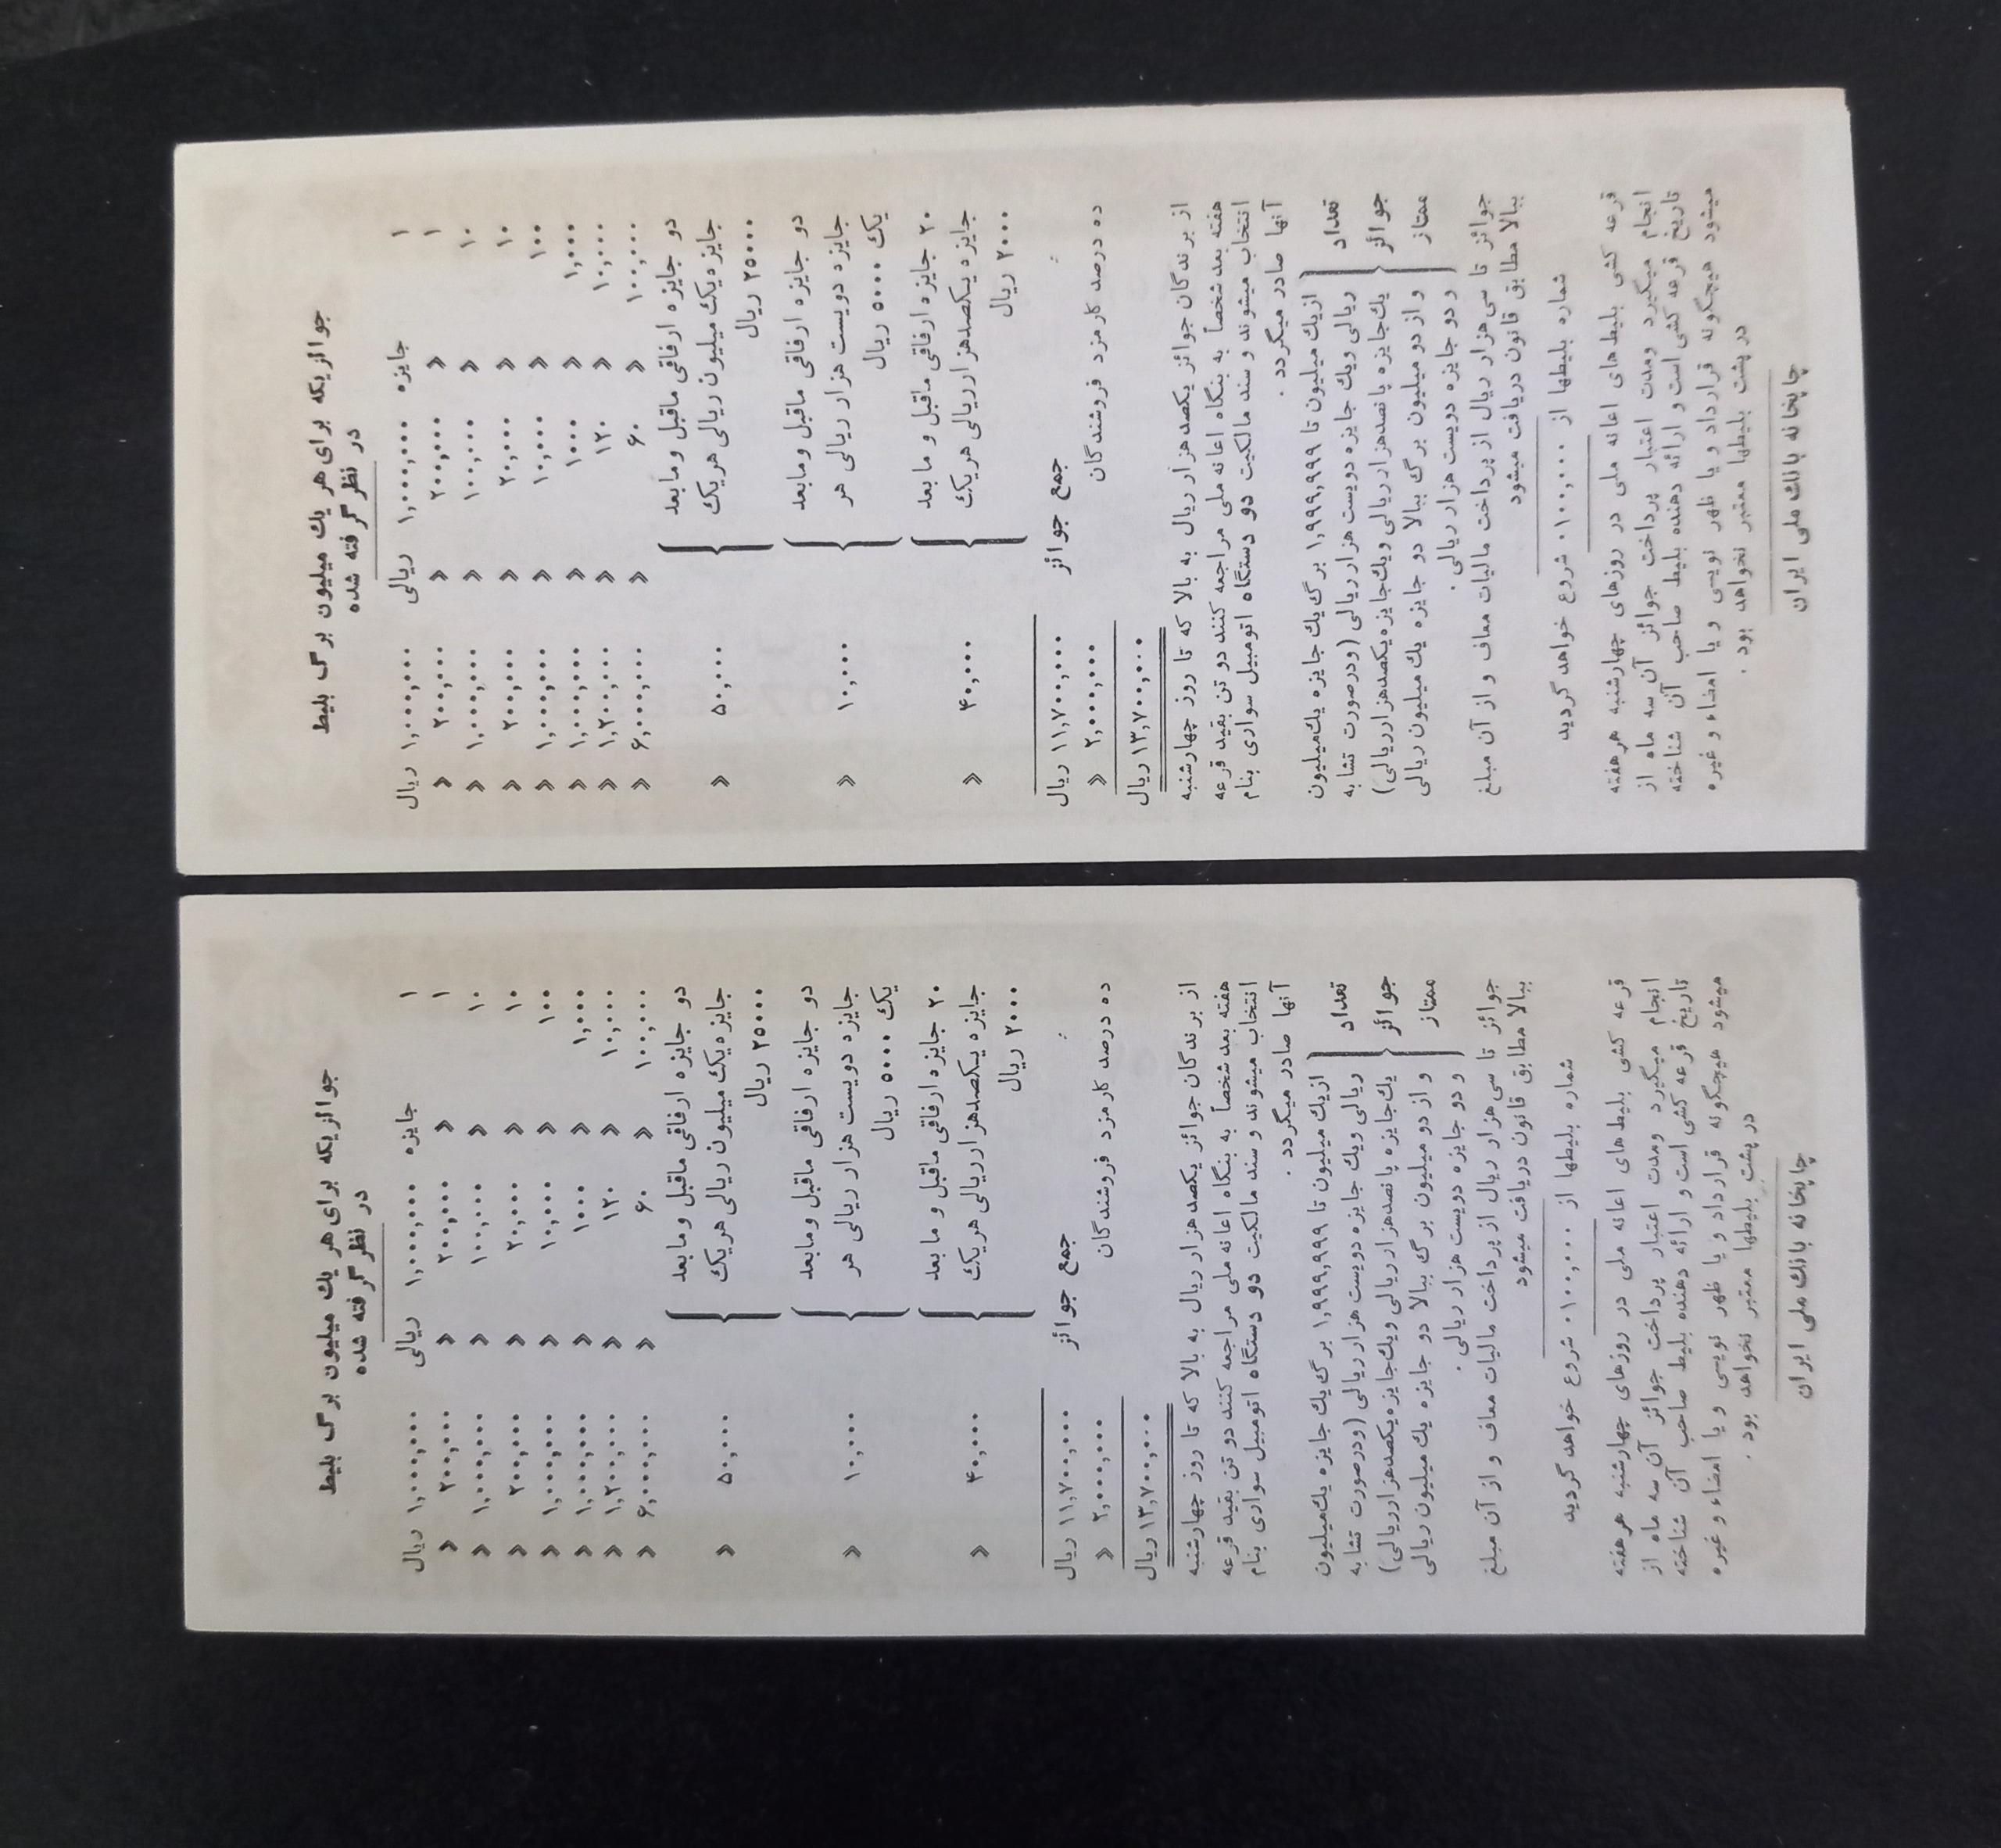 جوائزیکه برای هر یك میلیون برگ بلیط
در نظر گرفته شده
۱ جایزه ۱,۰۰۰,۰۰۰ ریالی ۱,۰۰۰,۰۰۰ ریال
۱ » ۲۰۰,۰۰۰ » ۲۰۰,۰۰۰ »
۱۰ » ۱۰۰,۰۰۰ » ۱,۰۰۰,۰۰۰ »
۱۰ » ۲۰,۰۰۰ » ۲۰۰,۰۰۰ »
۱۰۰ » ۱۰,۰۰۰ » ۱,۰۰۰,۰۰۰ »
۱,۰۰۰ » ۱۰۰۰ » ۱,۰۰۰,۰۰۰ »
۱۰,۰۰۰ » ۱۲۰ » ۱,۲۰۰,۰۰۰ »
۱۰۰,۰۰۰ » ۶۰ » ۶,۰۰۰,۰۰۰ »
دو جایزه ارفاقی ماقبل و مابعد
جایزه یک میلیون ریالی هریک
۲۵۰۰۰ ریال
۵۰,۰۰۰ »
دو جایزه ارفاقی ماقبل ومابعد
جایزه دویست هزار ریالی هر
یک ۵۰۰۰ ریال
۱۰,۰۰۰ »
۲۰ جایزه ارفاقی ماقبل و ما بعد
جایزه یکصدهزارریالی هریک
۲۰۰۰ ریال
۴۰,۰۰۰ »
جمع جوائز ۱۱,۷۰۰,۰۰۰ ریال
ده درصد کارمزد فروشندگان ۲,۰۰۰,۰۰۰ »
۱۳,۷۰۰,۰۰۰ ریال
از برندگان جوائز یکصدهزار ریال به بالا که تا روز چهارشنبه
هفته بعد شخصاً به بنگاه اعانه ملی مراجعه کنند دو تن بقید قرعه
انتخاب میشوند و سند مالکیت دو دستگاه اتومبیل سواری بنام
آنها صادر میگردد .
تعداد
جوائز
ممتاز
ازیك میلیون تا ۱,۹۹۹,۹۹۹ برگ یك جایزه یك‌میلیون
ریالی ویك جایزه دویست هزار ریالی (ودرصورت تشابه
یك‌جایزه پانصدهزار ریالی ویك‌جایزه یکصدهزارریالی)
و از دو میلیون برگ ببالا دو جایزه یك میلیون ریالی
و دو جایزه دویست هزار ریالی .
جوائز تا سی هزار ریال از پرداخت مالیات معاف و از آن مبلغ
ببالا مطابق قانون دریافت میشود
شماره بلیطها از ۱۰۰,۰۰۰ شروع خواهد گردید
قرعه کشی بلیط های اعانه ملی در روزهای چهارشنبه هر هفته
انجام میگیرد ومدت اعتبار پرداخت جوائز آن سه ماه از
تاریخ قرعه کشی است و ارائه دهنده بلیط صاحب آن شناخته
میشود هیچگونه قرارداد و یا ظهر نویسی و یا امضاء و غیره
در پشت بلیطها معتبر نخواهد بود .
چاپخانه بانك ملی ایران
جوائزیکه برای هر یك میلیون برگ بلیط
در نظر گرفته شده
۱ جایزه ۱,۰۰۰,۰۰۰ ریالی ۱,۰۰۰,۰۰۰ ریال
۱ » ۲۰۰,۰۰۰ » ۲۰۰,۰۰۰ »
۱۰ » ۱۰۰,۰۰۰ » ۱,۰۰۰,۰۰۰ »
۱۰ » ۲۰,۰۰۰ » ۲۰۰,۰۰۰ »
۱۰۰ » ۱۰,۰۰۰ » ۱,۰۰۰,۰۰۰ »
۱,۰۰۰ » ۱۰۰۰ » ۱,۰۰۰,۰۰۰ »
۱۰,۰۰۰ » ۱۲۰ » ۱,۲۰۰,۰۰۰ »
۱۰۰,۰۰۰ » ۶۰ » ۶,۰۰۰,۰۰۰ »
دو جایزه ارفاقی ماقبل و مابعد
جایزه یک میلیون ریالی هریک
۲۵۰۰۰ ریال
۵۰,۰۰۰ »
دو جایزه ارفاقی ماقبل ومابعد
جایزه دویست هزار ریالی هر
یک ۵۰۰۰ ریال
۱۰,۰۰۰ »
۲۰ جایزه ارفاقی ماقبل و ما بعد
جایزه یکصدهزارریالی هریک
۲۰۰۰ ریال
۴۰,۰۰۰ »
جمع جوائز ۱۱,۷۰۰,۰۰۰ ریال
ده درصد کارمزد فروشندگان ۲,۰۰۰,۰۰۰ »
۱۳,۷۰۰,۰۰۰ ریال
از برندگان جوائز یکصدهزار ریال به بالا که تا روز چهارشنبه
هفته بعد شخصاً به بنگاه اعانه ملی مراجعه کنند دو تن بقید قرعه
انتخاب میشوند و سند مالکیت دو دستگاه اتومبیل سواری بنام
آنها صادر میگردد .
تعداد
جوائز
ممتاز
ازیك میلیون تا ۱,۹۹۹,۹۹۹ برگ یك جایزه یك‌میلیون
ریالی ویك جایزه دویست هزار ریالی (ودرصورت تشابه
یك‌جایزه پانصدهزار ریالی ویك‌جایزه یکصدهزارریالی)
و از دو میلیون برگ ببالا دو جایزه یك میلیون ریالی
و دو جایزه دویست هزار ریالی .
جوائز تا سی هزار ریال از پرداخت مالیات معاف و از آن مبلغ
ببالا مطابق قانون دریافت میشود
شماره بلیطها از ۱۰۰,۰۰۰ شروع خواهد گردید
قرعه کشی بلیط های اعانه ملی در روزهای چهارشنبه هر هفته
انجام میگیرد ومدت اعتبار پرداخت جوائز آن سه ماه از
تاریخ قرعه کشی است و ارائه دهنده بلیط صاحب آن شناخته
میشود هیچگونه قرارداد و یا ظهر نویسی و یا امضاء و غیره
در پشت بلیطها معتبر نخواهد بود .
چاپخانه بانك ملی ایران